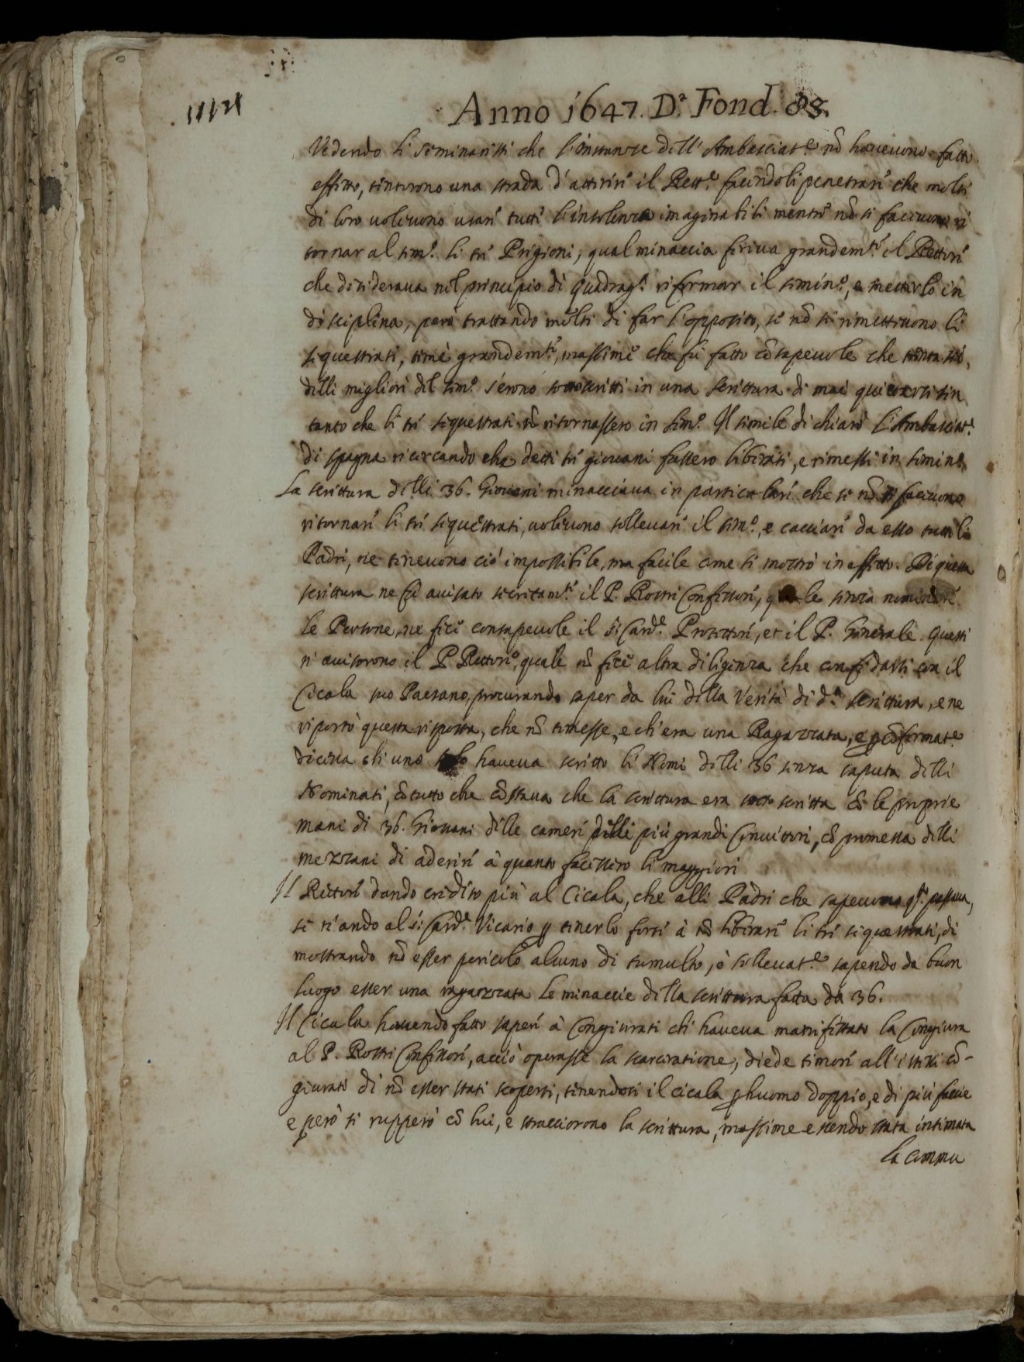 Anno 1647. D.ª Fond. 83.
Vedendo li Seminaristi che l'instanze dell'Ambasciat.re nõ havevono fatto
effetto, tentorono una strada d'atterir il Rett.e facendoli penetrare che molti
di loro volevono usare tutte l'insolenze imaginabili mentre nõ si facevono ri
tornar al Sem.o li tre Prigioni, qual minaccia feriva grandem.te il Rettore
che desiderava nel principio di quadrag.a riformar il Semin.o, e metterlo in
disciplina, però trattando molti di far l'opposito, se nõ si rimettevono li
sequestrati, temè grandem.te, massime che fù fatto cõsapevole che
delli migliori del Sem.o s'erono sottoscritti in una scrittura di mai sin
tanto che li tre sequestrati nõ ritornassero in Sem.o Il simile dichiarò l'Ambasciat.e
di Spagna ricercando che detti tre giovani fussero liberati, e rimessi in Semin.o
La scrittura delli 36. Giovani minacciava in particolare che se nõ si facevono
ritornare li tre sequestrati, volevono sollevare il Sem.o, e cacciare da esso tutti li
Padri, ne tenevono ciò impossibile, ma facile come si mostrò in effetto. Di questa
scrittura ne fù avisato secretam.te il P. Rossi Confessore, quale senza nominare
le Persone, ne fece consapevole il S. Card.e Protettore, et il P. Generale. Questi
n'avisorono il P. Rettore, quale nõ fece altra diligenza che confidarsi con il
Cicala suo Paesano, procurando saper da lui della Verità di d.a scrittura, e ne
riportò questa risposta, che nõ temesse, e ch'era una Ragazzata, e
diceva ch'uno solo haveva scritto li Nomi delli 36 senza saputa delli
Nominati, cõtutto che cõstava che la scrittura era sottoscritta cõ le proprie
mani di 36. Giovani delle camere delli più grandi Convittori, cõ promessa delli
mezzani di aderire à quanto facessero li maggiori
Il Rettore dando credito più al Cicala, che alli Padri che sapevono passava,
se n'andò al S. Card.e Vicario p tenerlo forte à nõ liberare li tre sequestrati, di
mostrando nõ esser pericolo alcuno di tumulto, ò sollevat.e sapendo da buon
luogo esser una ragazzata le minaccie della scrittura fatta da 36.
Il Cicala havendo fatto sapere à Congiurati ch'haveva manifestato la Congiura
al P. Rossi Confessore, acciò operasse la scarceratione, diede timore all'istessi cõ-
giurati di nõ esser stati scoperti, tenendosi il Cicala p huomo doppio, e di più faccie
e però si ruppero cõ lui, e stracciorono la scrittura, massime essendo stata intimata
la commu